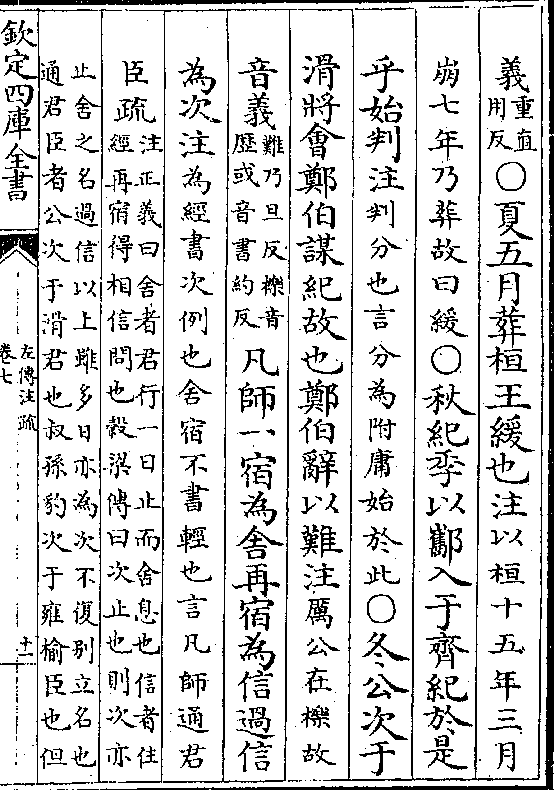 義重直
用反○夏五月葬桓王緩也注以桓十五年三月
崩七年乃葬故曰緩○秋紀季以酅入于齊紀於是
乎始判注判分也言分為附庸始於此○冬公次于
滑將會鄭伯謀紀故也鄭伯辭以難注厲公在櫟故
音義難乃旦反櫟音
歷或音書約反凡師一宿為舍再宿為信過信
為次注為經書次例也舍宿不書輕也言凡師通君
臣疏注正義曰舍者君行一日止而舍息也信者住
經再宿得相信問也穀梁傳曰次止也則次亦
止舍之名過信以上雖多日亦為次不復别立名也
通君臣者公次于滑君也叔孫豹次于雍榆臣也但
欽定四庫全書
左傳注疏
卷七
十一